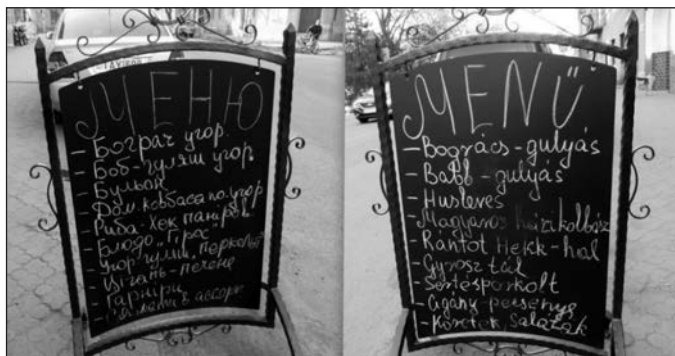 МЕНЮ
– Бограч угор.
– Боб-гуляш угор.
– Бульон
– Дом. ковбаса по. угор
– Риба-Хек паніров.
– Блюдо "Гірос"
– угор гуляш, перкельт
– Цігань-печене
– Гарніри
– Салати в ассорт
MENÜ
– Bogrács-gulyás
– Babb-gulyás
– Husleves
– Magyaros házikolbász
– Rántot Hekk-hal
– Gyrosz tál
– Sertésporkolt
– Cigány-pecsenye
– Köretek, Saláták